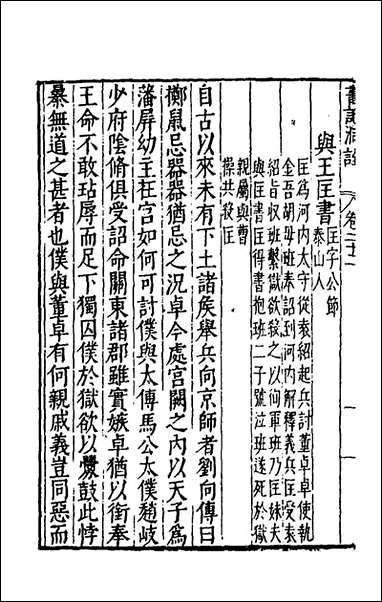 書記洞詮 卷二十
與王匡書
匡字公節
泰山人
匡為河内太守從袁紹起兵討董卓卓使執
金吾胡母班奉詔到河内解釋義兵匡受袁
紹旨收班繫獄欲殺之以徇軍班乃匡妹夫
與匡書匡得書抱班二子號泣班遂死於獄
親屬與曹
操共殺匡
自古以來未有下土諸矦舉兵向京師者劉向傳曰
擲鼠忌器器猶忌之況卓今處宮闕之内以天子為
藩屏幼主在宮如何可討僕與太傅馬公太僕趙岐
少府陰脩俱受詔命關東諸郡雖實嫉卓猶以銜奉
王命不敢玷辱而足下獨囚僕於獄欲以釁鼓此悖
暴無道之甚者也僕與董卓有何親戚義豈同惡而